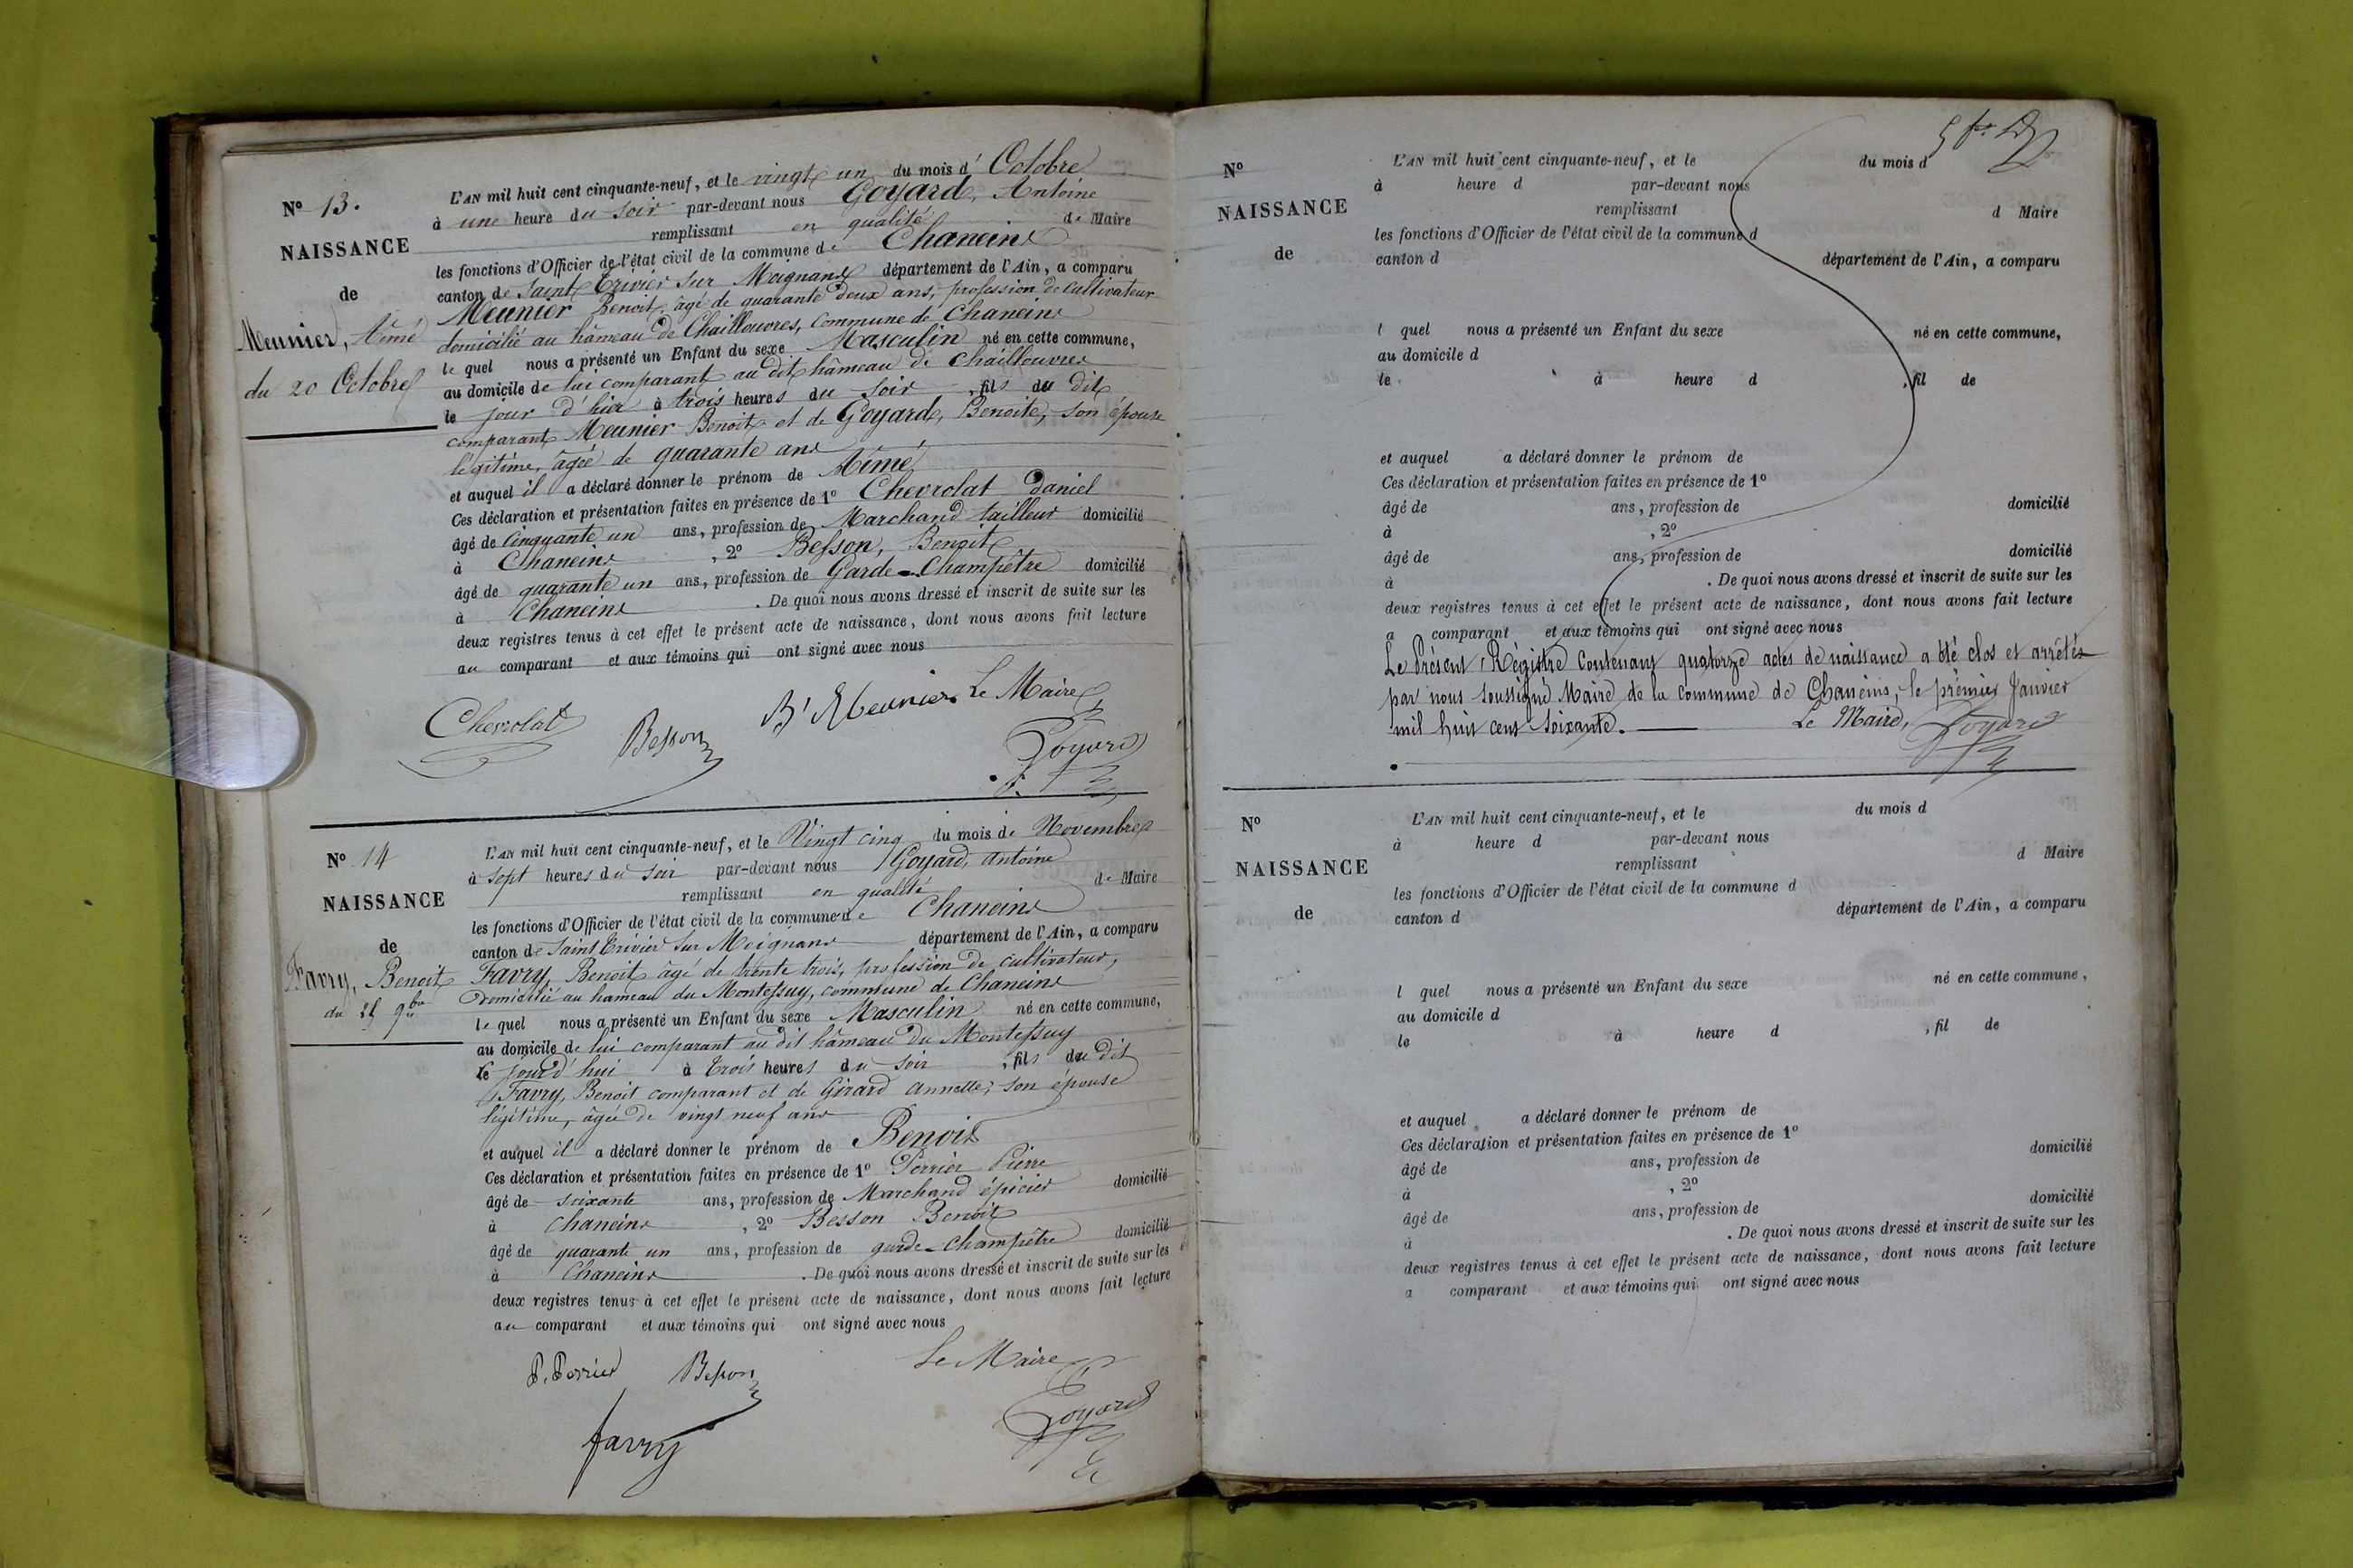 N° 13.
NAISSANCE
de
Meunier, Aimé
du 20 Octobre
L'AN mil huit cent cinquante-neuf, et le vingt un du mois d'Octobre
à une heure du soir par-devant nous Goyard, Antoine
remplissant en qualité de Maire
les fonctions d'Officier de l'état civil de la commune de Chaneins
canton de Saint Trivier sur Moignans département de l'Ain, a comparu
Meunier Benoit, âgé de quarante deux ans, profession de cultivateur
domicilié au hâmeau de Chaillouvres, commune de Chaneins
le quel nous a présenté un Enfant du sexe Masculin né en cette commune,
au domicile de lui comparant au dit hâmeau de Chaillouvres
le jour d'hier à trois heures du soir, fils du dit
comparant Meunier Benoit et de Goyard, Benoite, son épouse
légitime, âgée de quarante ans
et auquel il a déclaré donner le prénom de Aimé
Ces déclaration et présentation faites en présence de 1° Chevrolat Daniel
âgé de Cinquante un ans, profession de Marchand tailleur domicilié
à Chaneins, 2° Besson, Benoit
âgé de quarante un ans, profession de Garde-Champêtre domicilié
à Chaneins. De quoi nous avons dressé et inscrit de suite sur les
deux registres tenus à cet effet le présent acte de naissance, dont nous avons fait lecture
au comparant et aux témoins qui ont signé avec nous
Chevrolat Besson Bt Meunier Le Maire
Goyard
N° 14
NAISSANCE
de
Favry, Benoit
du 25 9bre
L'AN mil huit cent cinquante-neuf, et le Vingt cinq du mois de Novembre
à sept heures du soir par-devant nous Goyard, Antoine
remplissant en qualité de Maire
les fonctions d'Officier de l'état civil de la commune de Chaneins
canton de Saint Trivier sur Moignans département de l'Ain, a comparu
Favry, Benoit âgé de trente trois, profession de cultivateur,
domicilié au hameau du Montessuy, commune de Chaneins
le quel nous a présenté un Enfant du sexe Masculin né en cette commune,
au domicile de lui comparant au dit hâmeau du Montessuy
le jourd'hui à trois heures du soir, fils du dit
Favry, Benoit comparant et de Girard Annette, son épouse
légitime, âgée de vingt neuf ans
et auquel il a déclaré donner le prénom de Benoit
Ces déclaration et présentation faites en présence de 1° Perrier Pierre
âgé de soixante ans, profession de Marchand épicier domicilié
à Chaneins, 2° Besson Benoit
âgé de quarante un ans, profession de garde-Champêtre domicilié
à Chaneins. De quoi nous avons dressé et inscrit de suite sur les
deux registres tenus à cet effet le présent acte de naissance, dont nous avons fait lecture
au comparant et aux témoins qui ont signé avec nous
P. Perrier Besson Le Maire
favry Goyard
N°
NAISSANCE
de
L'AN mil huit cent cinquante-neuf, et le du mois d
à heure d par-devant nous
remplissant d Maire
les fonctions d'Officier de l'état civil de la commune d
canton d département de l'Ain, a comparu
l quel nous a présenté un Enfant du sexe né en cette commune,
au domicile d
le à heure d , fil de
et auquel a déclaré donner le prénom de
Ces déclaration et présentation faites en présence de 1°
âgé de ans, profession de domicilié
à , 2°
âgé de ans, profession de domicilié
à . De quoi nous avons dressé et inscrit de suite sur les
deux registres tenus à cet effet le présent acte de naissance, dont nous avons fait lecture
a comparant et aux témoins qui ont signé avec nous
Le Présent Régistre Contenant quatorze actes de naissance a été clos et arrêtés
par nous soussigné Maire de la commune de Chaneins, le premier Janvier
mil huit cent soixante. Le Maire, Goyard
N°
NAISSANCE
de
L'AN mil huit cent cinquante-neuf, et le du mois d
à heure d par-devant nous
remplissant d Maire
les fonctions d'Officier de l'état civil de la commune d
canton d département de l'Ain, a comparu
l quel nous a présenté un Enfant du sexe né en cette commune,
au domicile d
le à heure d , fil de
et auquel a déclaré donner le prénom de
Ces déclaration et présentation faites en présence de 1°
âgé de ans, profession de domicilié
à , 2°
âgé de ans, profession de domicilié
à . De quoi nous avons dressé et inscrit de suite sur les
deux registres tenus à cet effet le présent acte de naissance, dont nous avons fait lecture
a comparant et aux témoins qui ont signé avec nous